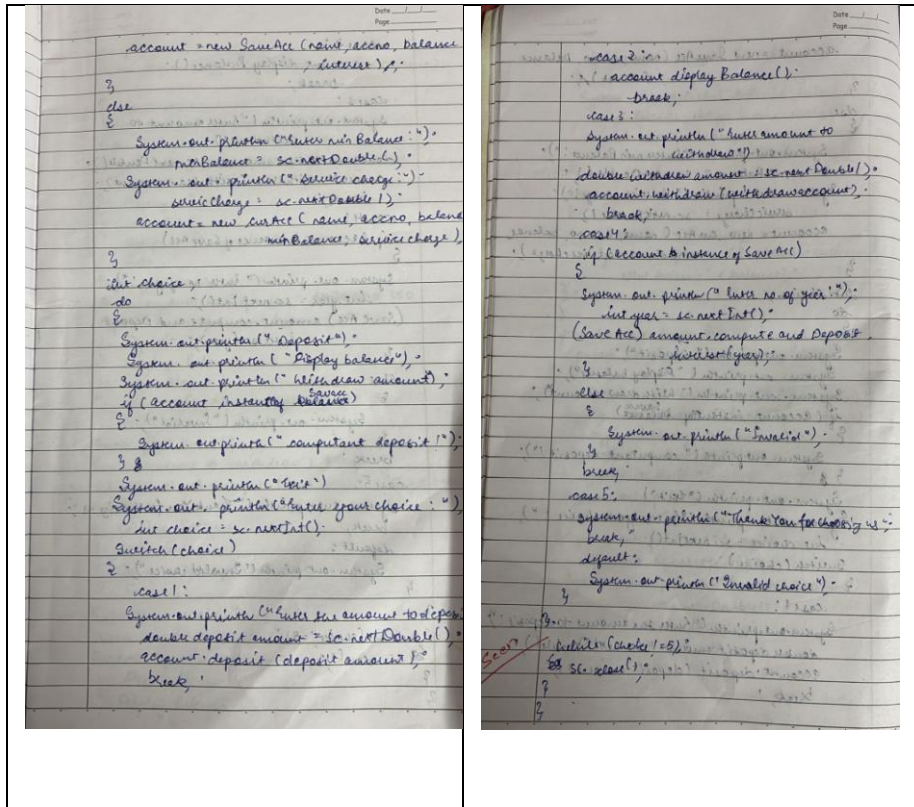 Date
Page
account = new SaveAcc (name, accno, balance
, interest);
}
else
{
System.out.println("Enter min Balance : ").
minBalance = sc.nextDouble()
System.out.println("Service charge :").
serviceCharge = sc.nextDouble();
account = new curAcc ( name, accno, balance
minBalance, service charge),
}
int choice
do
{
System.out.println(" Deposit").
System.out.println(" Display balance").
System.out.println(" Withdraw amount),
if (account Saveacc
{
System.out.println(" computant deposit !").
}
System.out.println("Exit")
System.out.println("Enter your choice : "),
int choice = sc.nextInt().
Switch (choice)
{
case 1:
System.out.println("Enter the amount to deposi
double deposit amount = sc.nextDouble();
account.deposit (deposit amount);
break;
Date
Page
case 2:
account display Balance();
break;
case 3:
System.out.println("Enter amount to
withdraw")
double withdraw amount = sc.nextDouble().
account.withdraw (withdraw account),
break,
case 4:
if (account instance of SaveAcc)
{
System.out.println(" Enter no. of year : "),
int year = sc.nextInt();
(Save Acc) amount.compute and Deposit
interest (year);
}
else
{
System.out.println("Invalid").
}
break;
case 5:
System.out.println("Thank You for choosing us"
break;
default:
System.out.println("Invalid choice").
}
}
while (choice != 5);
sc.close();
}
}
Seen